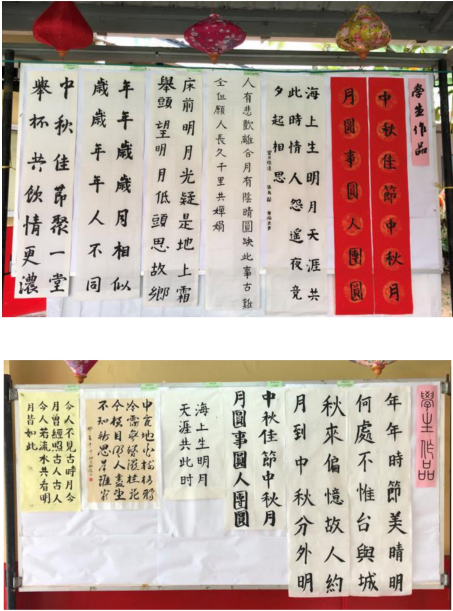 學生作品
中秋佳節中秋月
月圓事圓人團圓
海上生明月天涯共
此時情人怨遙夜竟
夕起相思
人有悲歡離合月有陰晴圓缺此事古難
全但願人長久千里共嬋娟
床前明月光疑是地上霜
舉頭望明月低頭思故鄉
年年歲歲月相似
歲歲年年人不同
中秋佳節聚一堂
舉杯共飲情更濃
學生作品
年年時節美晴明
何處不惟台與城
秋來偏憶故人約
月到中秋分外明
中秋佳節中秋月
月圓事圓人團圓
海上生明月
天涯共此時
中庭地白樹栖鴉
冷露無聲濕桂花
今夜月明人盡望
不知秋思誰家
今人不見古時月今
月曾經照古人古人
今人若流水共看明
月皆如此